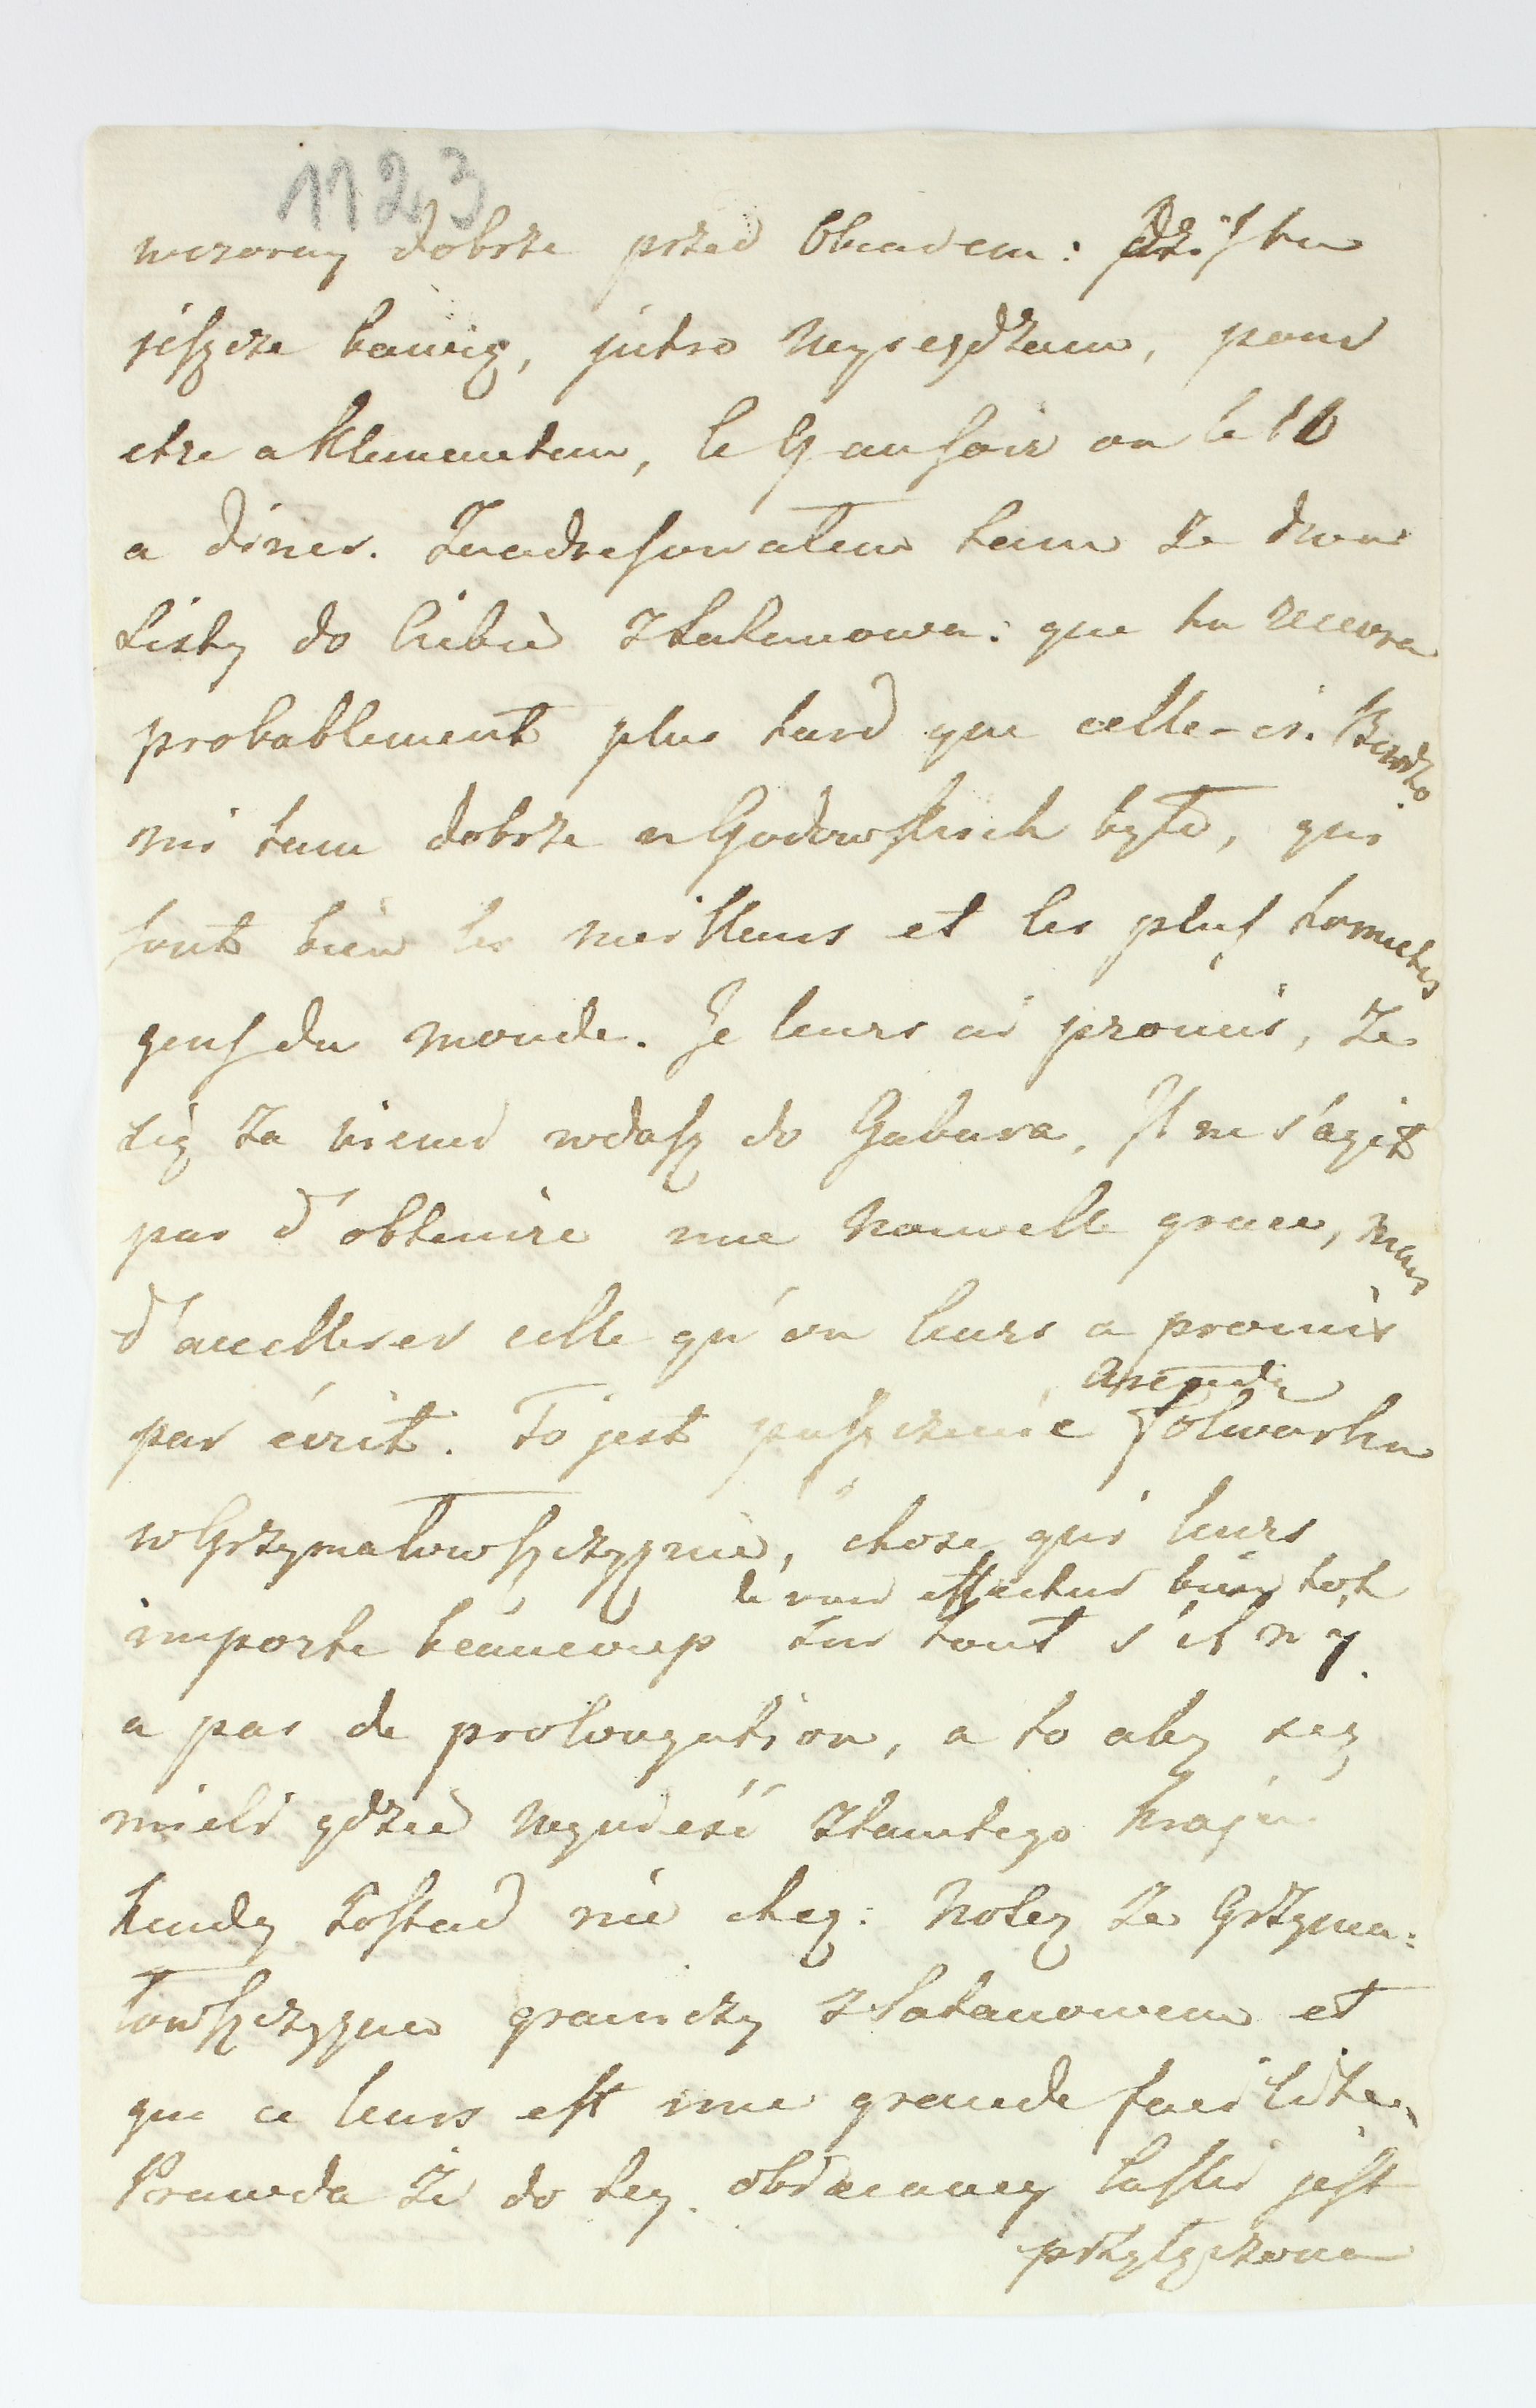 1123
wczoray dobrze przed Obiadem: dziś tu
jeszcze bawię, jutro wyjeżdżam, pour
etre a Klemantem, le 9 au soir ou le 10
a diner. Zaadresowałem tam ze dwa
Listy do Ciebie z Satanowa: que tu recevra
probablement plus tard que celle-ci. Bardzo
mi tam dobrze u Godowskich było, qui
sont bien les meilleurs et les plus honnetes
gens du monde. Je leurs ai promis, że
się za niemi wdasz do Gubura. Il ne s'agit
pas d'obtenire une nouvelle grace, mais
d'accellerer celle qu'on leurs a promis
par écrit. To jest puszczenie Arendą folwarku
w Grzymałowszczyznie, chose qui leurs
importe beaucoup de voir effectuer bien tot
sur tout s'il n'y
a pas de prolongation, a to aby się
mieli gdzie wynieść z tamtego kraju
kiedy zostać nie chcą: Notez że Grzyma:
łowszczyzna graniczy z Satanowem et
que ce leurs est une grande facilité.
Prawda że do tey obiecaney łaski jest
przyłączona